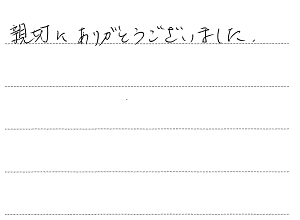 親切にありがとうございました.